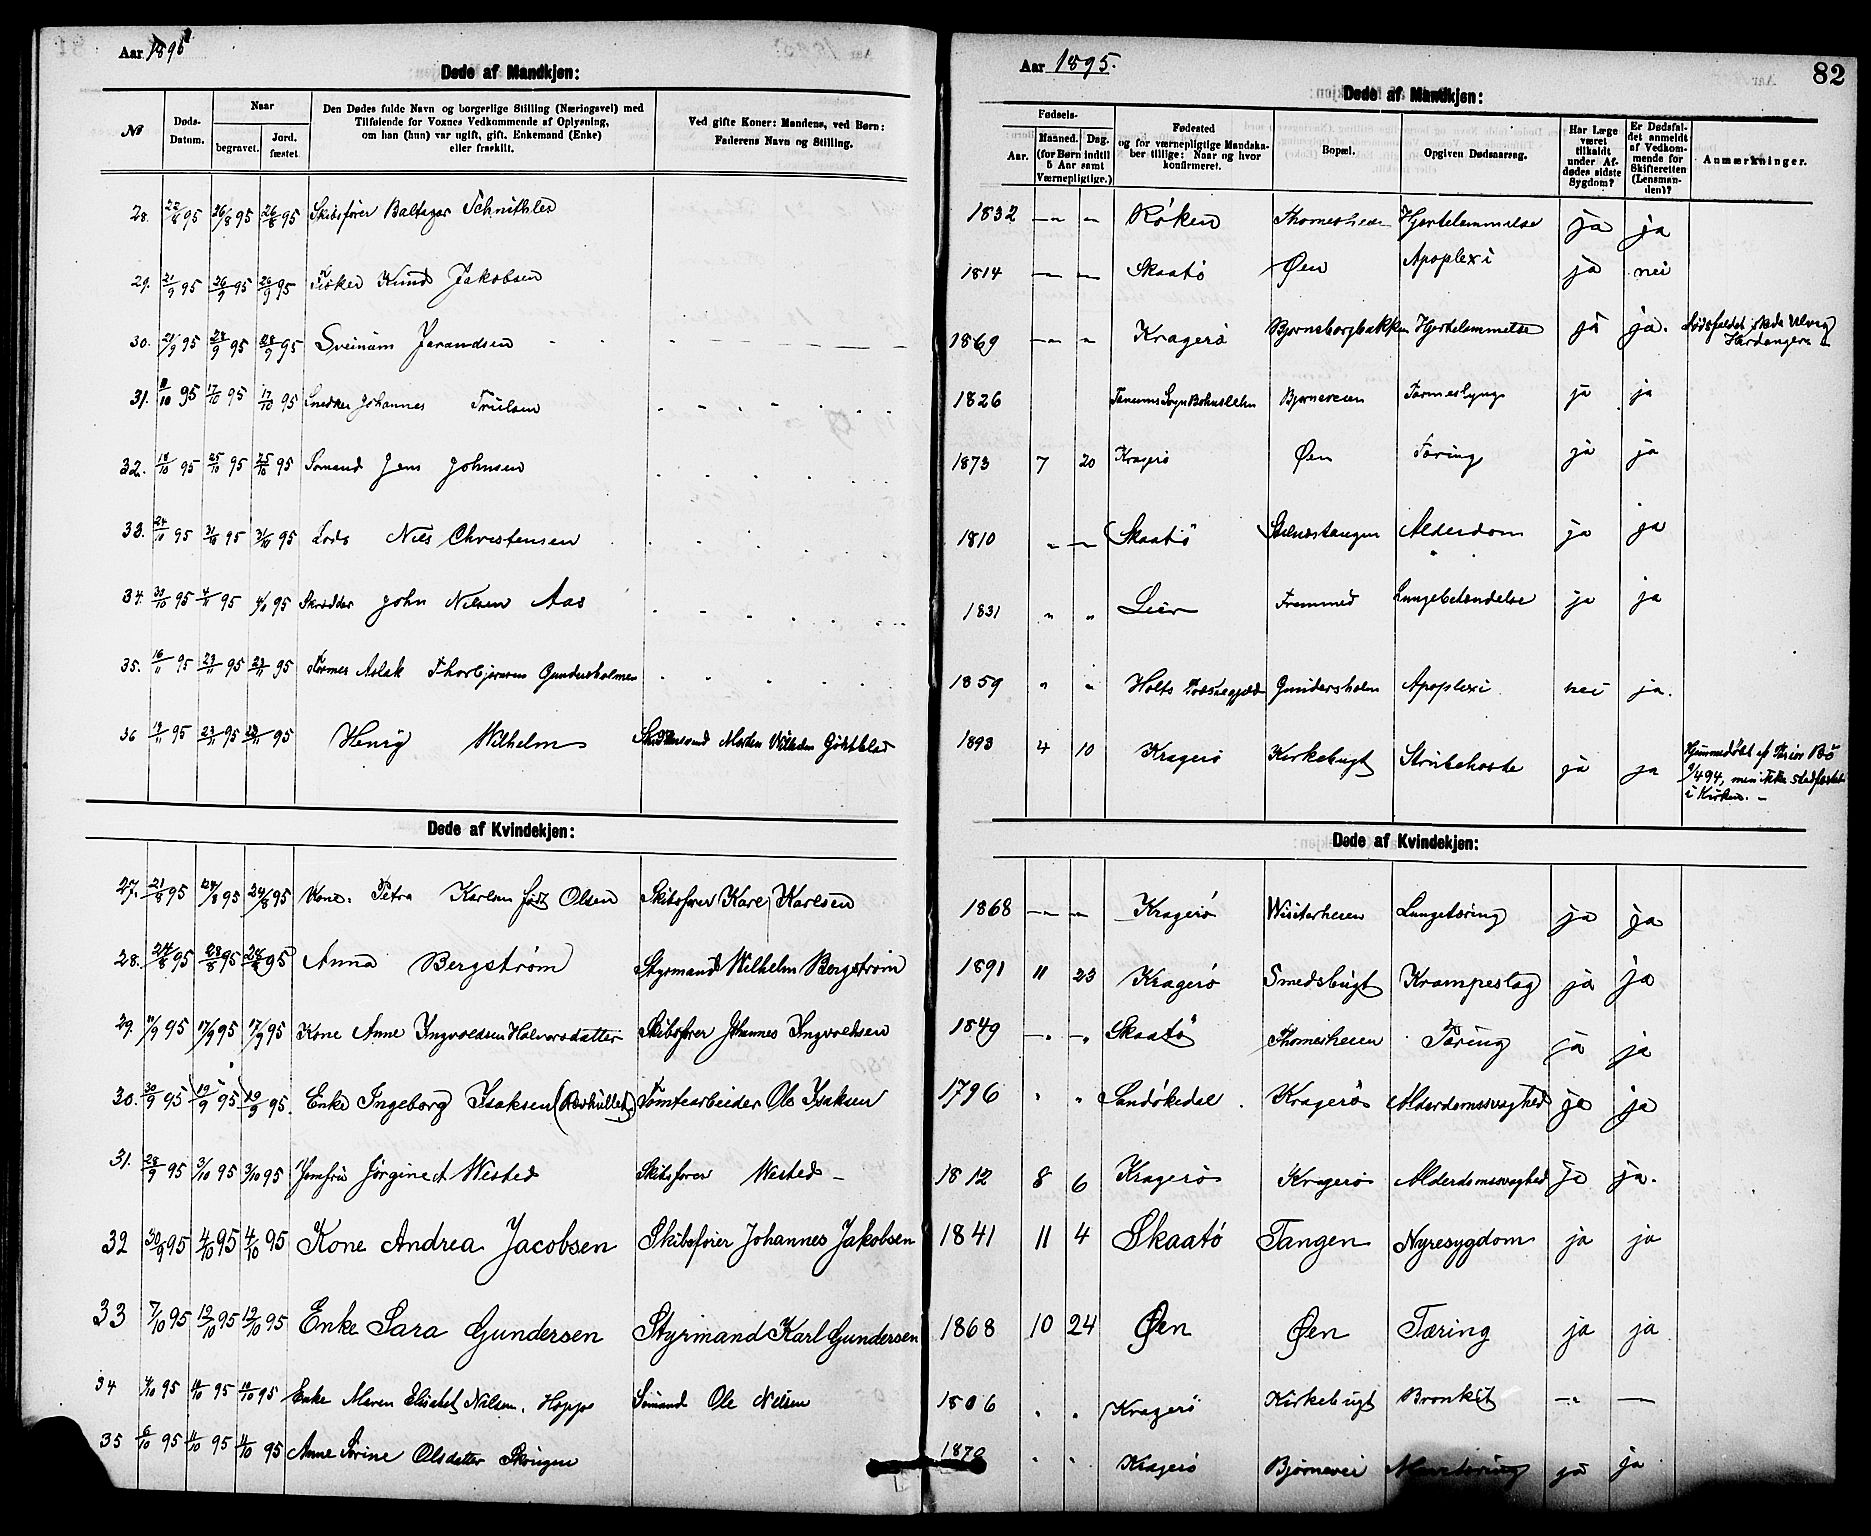 Aar 1895
Døde af Mandkjøn:
№
Døds-Datum.
Naar
begravet.
Jord. fæstet
Den Dødes fulde Navn og borgerlige Stilling (Næringsvei) med
Tilføiende for Voxnes Vedkommende af Oplysning,
om han (hun) var ugift, gift, Enkemand (Enke)
eller fraskilt.
Ved gifte Koner: Mandens, ved Børn:
Faderens Navn og Stilling.
28. 22/8 95 26/8 95 26/8 95 Skibsfører Baltazar Schnitler
29. 21/9 95 26/9 95 26/9 95 Fisker Knud Jakobsen
30. 21/9 95 28/9 95 28/9 95 Sveinum Jarandsen
31. 11/10 95 17/10 95 17/10 95 Snedker Johannes Trulsen
32. 18/10 95 25/10 95 25/10 95 Sømand Jens Johnsen
33. 24/10 95 31/10 95 31/10 95 Lods Nils Christensen
34. 30/10 95 4/11 95 95 Skrædder John Nilsen Aas
35. 16/11 95 23/11 95 23/11 95 Aslak Thorbjørnsen Gundersholmen
36 19/11 95 23/11 95 23/11 95 Henrig Wilhelm Morten Vilhelm
Døde af Kvindekjøn:
27. 21/8 95 24/8 95 24/8 95 Kone Petra Karlsen født Olsen Skibsfører Karl Karlsen
28. 24/8 95 28/8 95 28/8 95 Anna Bergstrøm Styrmand Wilhelm Bergstrøm
29. 11/9 95 17/9 95 17/9 95 Kone Anne Ingvoldsen Halvorsdatter Skibsfører Johannes Ingvoldsen
30. 30/9 95 19/9 95 19/9 95. Enke Ingeborg Isaksen Tomtearbeider Ole Isaksen
31. 28/9 95 3/10 95 3/10 95 Jomfru Jørgine Wested Skibsfører Wested –
32 30/9 95 4/10 95 4/10 95 Kone Andrea Jacobsen Skibsfører Johannes Jakobsen
33 7/10 95 12/10 95 12/10 95 Enke Sara Gundersen Styrmand Karl Gundersen
34 95 95 95 Enke Maren Elisabet Nilsen, Hoppe Sømand Ole Nilsen
35 6/10 95 11/10 95 11/10 95 Anne Sørine Olsdatter
Aar 1895.
82
Døde af Mandkjøn:
Fødsels-
Aar.
Maaned. Dag.
(for Børn indtil
5 Aar samt
Værnepligtige.)
Fødested
og for værnepligtige Mandska-
ber tillige: Naar og hvor
konfirmeret.
Bopæl.
Opgiven Dødsaarsag.
Har Læge
været
tilkaldt
under Af-
dødes sidste
Sygdom?
Er Dødsfal-
det anmeldt
af Vedkom-
mende for
Skifteretten
(Lensman-
den)?
Anmærkninger.
1832 – " – " Røken Thomesheien Hjertelammelse ja ja
1814 – " – " Skaatö Øen Apoplexi ja nei
1869 – " – " Kragerö Bjørnsborgbakken Hjertelammelse ja ja. Dødsfaldet skede Ulvig
Hardanger
1826 Tanums Sogn Bohuslehn Bjørneveien ja ja
1873 7 20 Kragerö Øen Tæring ja ja
1810 " – " Skaatö Alderdom ja ja
1831 " " Lier Fremmed Lungebetændelse ja ja
1859 " " Holts Præstegjæld Gundersholm Apoplexi nei ja.
1893 4 10 Kragerö Kirkebugt Strubehoste ja ja Hjemmedöbt af
9/4 94, men ikke stadfæstet
i Kirken. –
Døde af Kvindekjøn:
1868 – " – " Kragerö Wisiterheien Lungetæring ja ja
1891 11 23 Kragerö Smedsbugt Krampeslag ja ja
1849 – " – " Skaatö Thomesheien Tæring ja ja
1796 " " Sandökedal Kragerö Alderdomssvaghed ja ja
1812 8 6 Kragerö Kragerö Alderdomssvaghed ja ja.
1841 11 4 Skaatö Tangen Nyresygdom ja ja
1868 10 24 Øen Øen Tæring ja ja
1806 " " Kragerö Kirkebugt Bronkit – " –
1870 " " Kragerö Bjørnevei ja ja